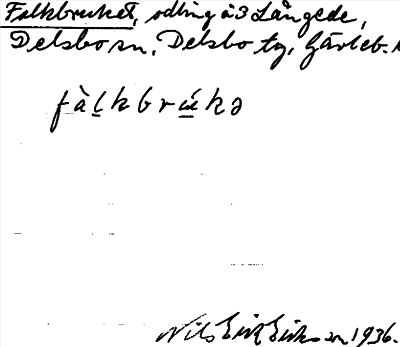 Falkbruket, odling å 3 Långede,
Delsbo sn, Delsbo tg, Gävleb.
fàlkbrúkə
Nils Erik Eriksson 1936.